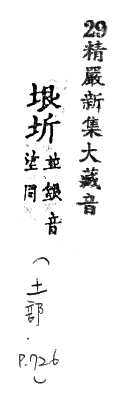 29精嚴新集大藏音
垠圻並銀音
塗同
(土部.
P.726)